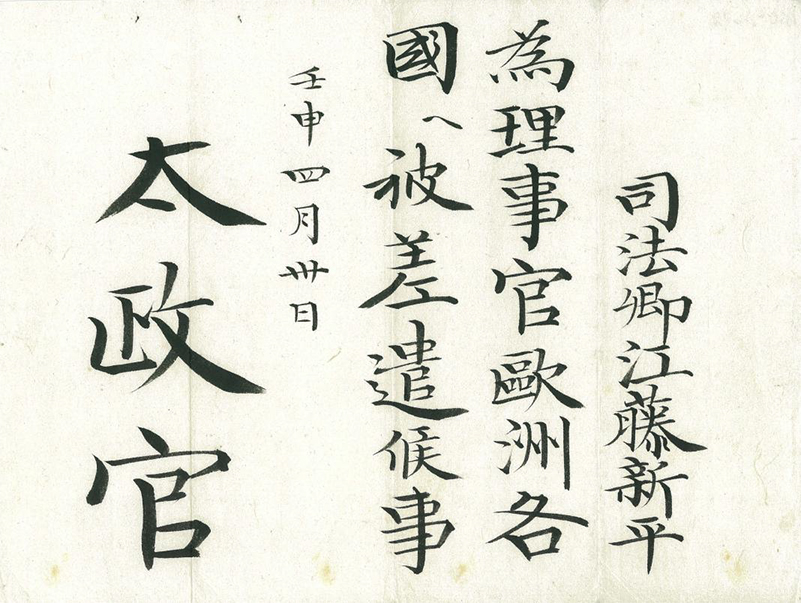 司法卿江藤新平
為理事官歐洲各
國へ被差遣候事
壬申四月卅日
太政官